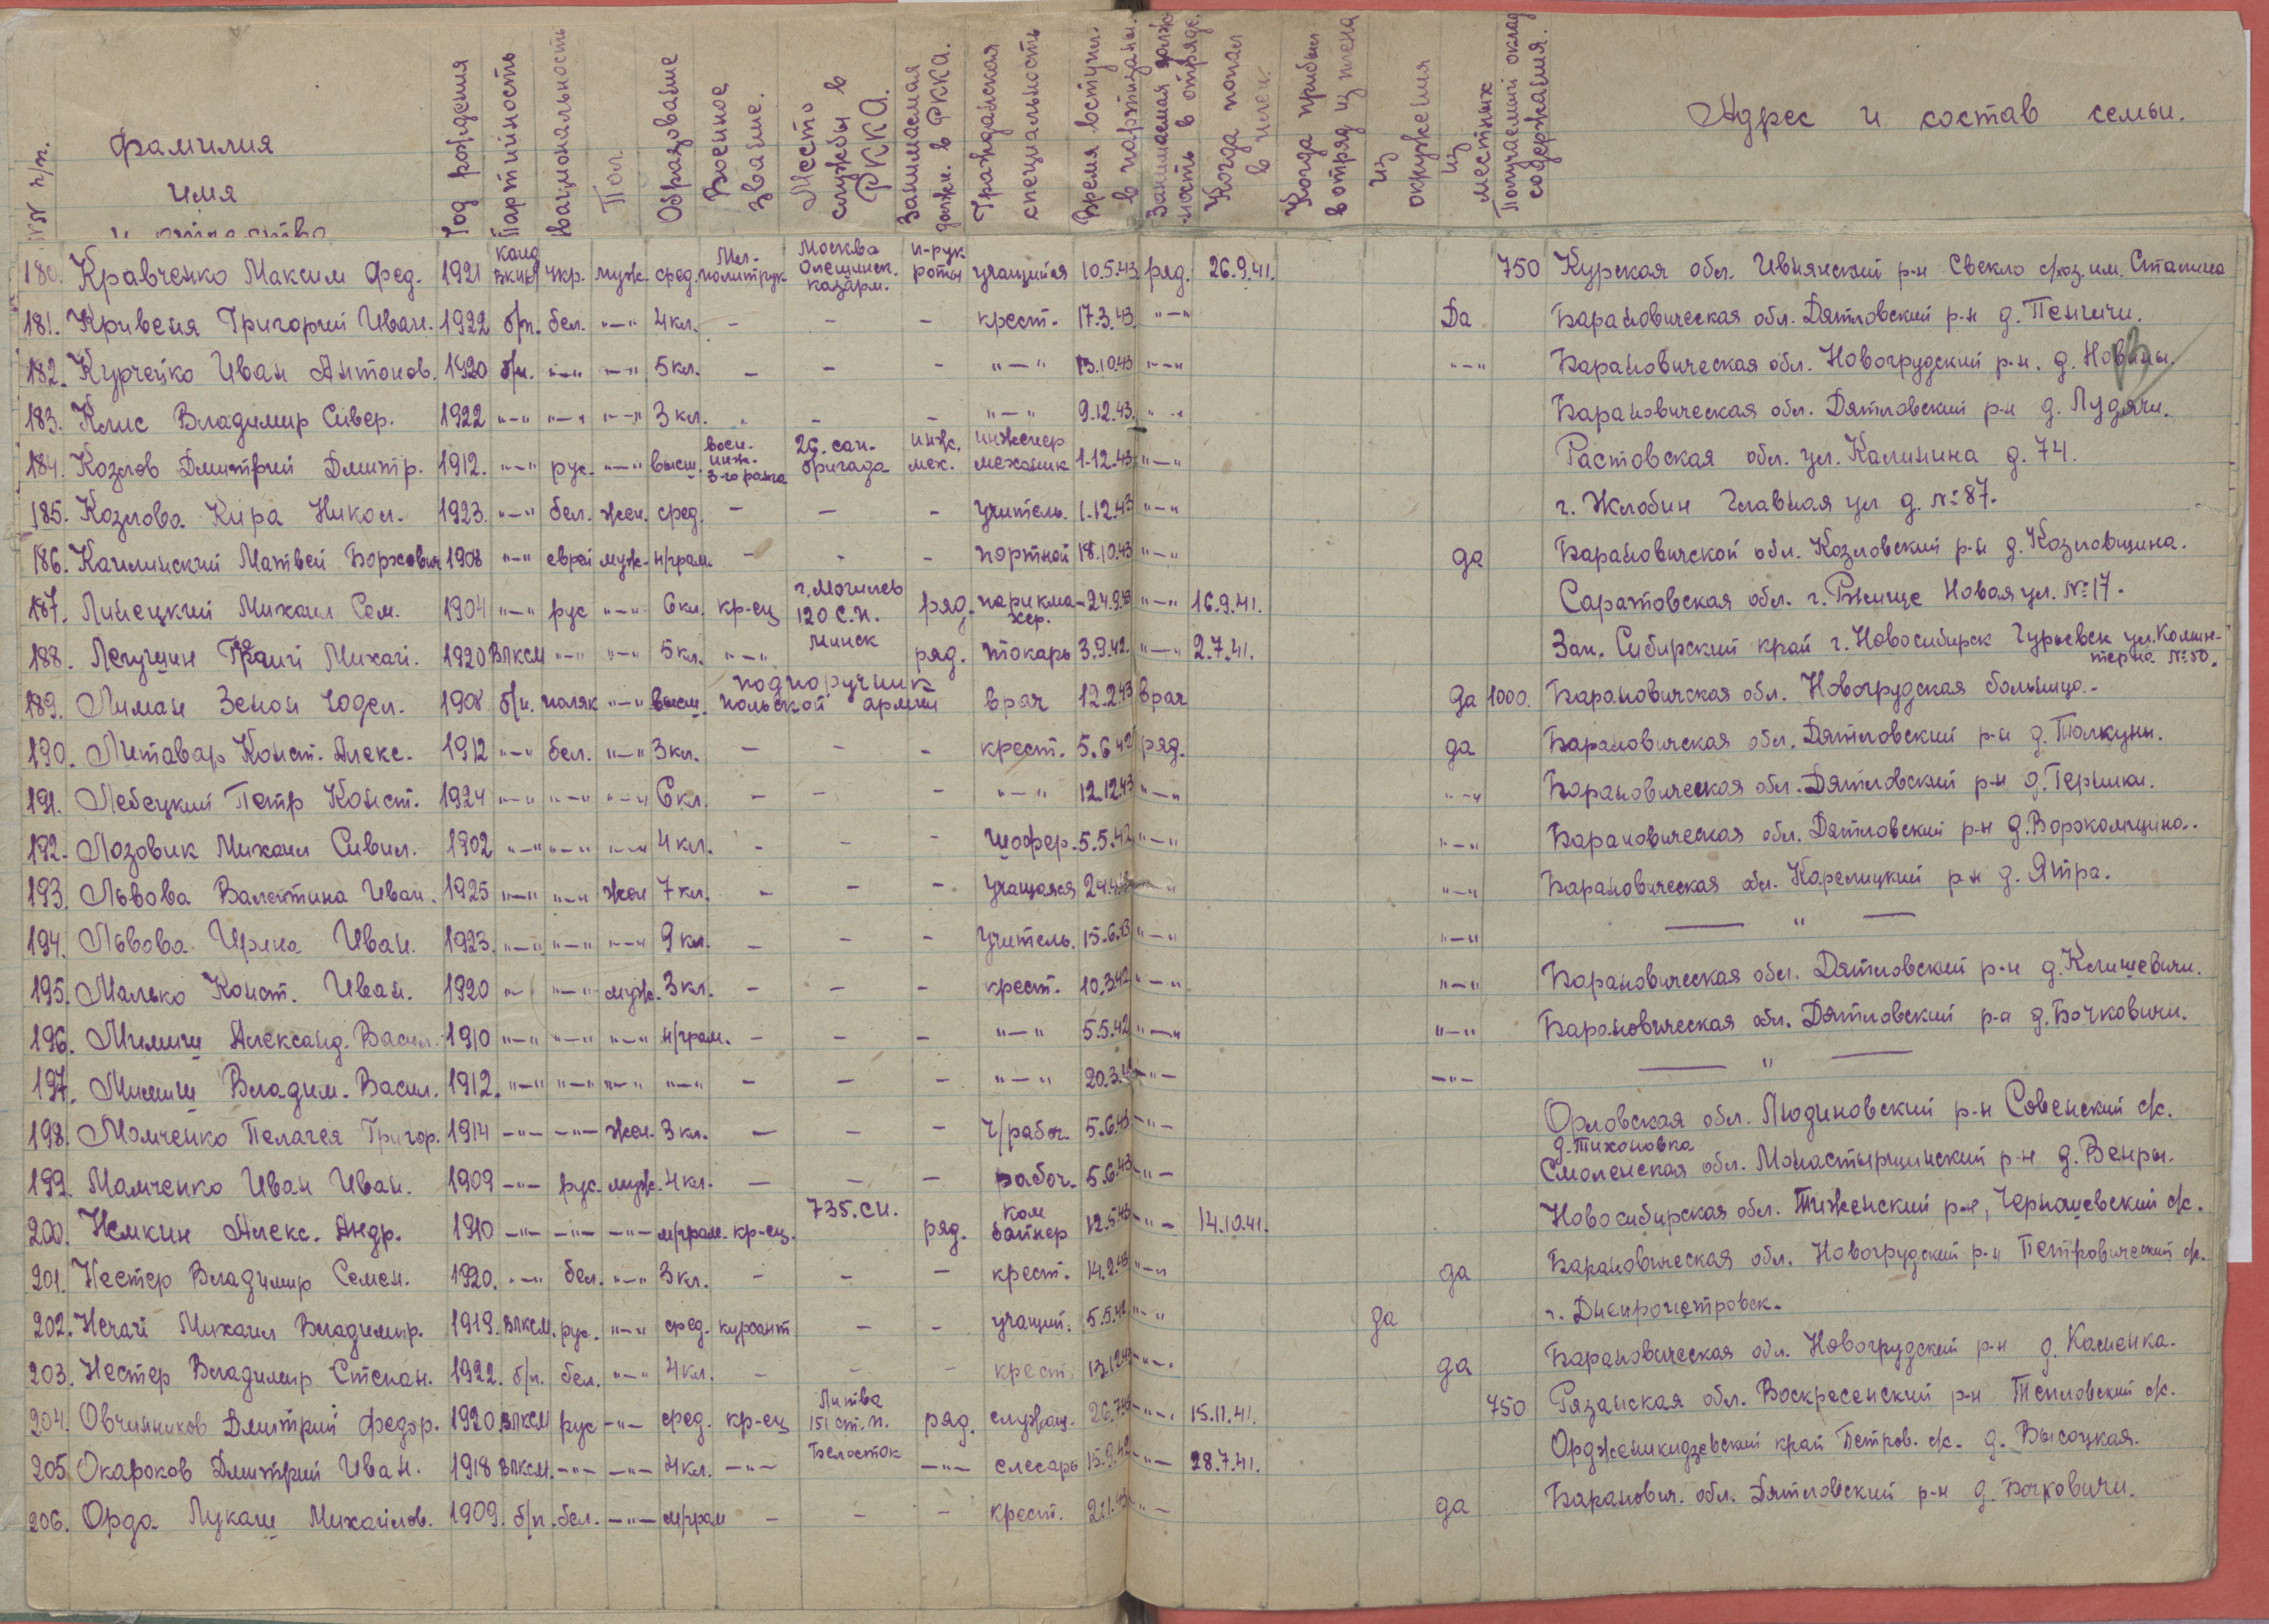 №№ п/п. Фамилия имя и отчества Год рождения Партийность Национальность Пол. Образование Военное звание. Место службы в РККА. Занимаемая должн. в РККА. Гражданская специальность Время вступил. в партизаны. Занимаемая должность в отряде. Когда попал в плен. Когда прибыл в отряд из плена из окружения из местных Получаемый оклад содержания. Адрес и состав семьи.
180. Кравченко Максим Фед. 1921 канд ВКП(б) укр. муж. сред. Мл. политрук Москва казарм. п-рук роты учащийся 10.5.43 ряд. 26.9.41. 750 Курская обл. Ивнянский р-н Свекло с/хоз. им. Сталина
181. Кривеня Григорий Иван. 1922 б/п. бел. "—" 4кл. - - - крест. 17.3.43. "—" Да Барановическая обл. Дятловский р-н д. Пенчичи.
182. Курчейко Иван Антонов. 1920 б/п. "—" "—" 5кл. - - - "—" 13.10.43 "—" "—" Барановическая обл. Новогрудский р-н. д. Новины.
183. Клис Владимир Сивер. 1922 "—" "—" "—" 3кл. - - - "—" 9.12.43. "—" Барановическая обл. Дятловский р-н д. Лудячи.
184. Козлов Дмитрий Дмитр. 1912. "—" рус. "—" высш. воен. инж. 3-го ранга 26. сан. бригада инж. мех. инженер механик 1-12.43 "—" Растовская обл. ул. Калинина д. 74.
185. Козлова Кира Никол. 1923. "—" бел. жен. сред. - - - учитель. 1.12.43 "—" г. Жлобин Главная ул д. №87.
186. Качинский Матвей Борхович 1908 "—" еврей муж. н/грам. - - - портной 18.10.43 "—" да Барановической обл. Козловский р-н д. Козловщина.
187. Липецкий Михаил Сем. 1904 "—" рус "—" 6кл. кр-ец г. Могилев 120 С.П. ряд. парикмахер. 24.9.43 "—" 16.9.41. Саратовская обл. г. Ртище Новая ул. №17.
188. Легущин Михаи. 1920 ВЛКСМ "—" "—" 5кл. "—" Минск ряд. токарь 3.9.42. "—" 2.7.41. Зап. Сибирский край г. Новосибирск Гурьевск ул. Коминтерна №50.
189. Лиман Зенон Юдел. 1908 б/п. поляк "—" высш. подпоручник польской армии врач 12.2.43 врач да 1000. Барановичская обл. Новогрудская больница.
190. Литавар Конст. Алекс. 1912 "—" бел. "—" 3кл. - - - крест. 5.6.42 ряд. да Барановичская обл. Дятловский р-н д. Полкуны.
191. Лебецкий Петр Конст. 1924 "—" "—" "—" 6кл. - - - "—" 12.12.43 "—" "—" Барановическая обл. Дятловский р-н д. Гершки.
192. Лозовик Михаил Сивил. 1902 "—" "—" "—" 4кл. - - - шофер. 5.5.42 "—" "—" Барановическая обл. Дятловский р-н д. Ворокомщина.
193. Львова Валентина Иван. 1925 "—" "—" жен 7кл. - - - учащаяся "—" "—" Барановическая обл. Карелицкий р-н д. Ятра.
194. Львова Ирина Иван. 1923. "—" "—" "—" 9кл. - - - учитель. 15.6.43 "—" "—" — " —
195. Малько Конст. Иван. 1920 "—" "—" муж. 3кл. - - - крест. 10.3.42 "—" "—" Барановическая обл. Дятловский р-н д. Клишевичи.
196. Мимиш Александ. Васил. 1910 "—" "—" "—" н/грам. - - - "—" 5.5.42 "—" "—" Барановическая обл. Дятловский р-н д. Бочковичи.
197. Мимиш Владим. Васил. 1912. "—" "—" "—" "—" - - - "—" "—" "—" — " —
198. Момченко Пелагея Григор. 1914 —"— —"— жен. 3кл. - - - ч/рабоч. 5.6.43 "—" Орловская обл. Людиновский р-н Совенский с/с. д. Тихоновка
199. Мамченко Иван Иван. 1909 —"— рус. муж. 4кл. - - - рабоч. 5.6.43 —"— Смоленская обл. Монастырщинский р-н д. Венры.
200. Немкин Алекс. Андр. 1910 —"— —"— —"— м/грам. кр-ец. 735. СП. ряд. комбайнер 12.5.43 —"— 14.10.41. Новосибирская обл. Тиженский р-н, Чернашевский с/с.
201. Нестер Владимир Семен. 1920. "—" бел. "—" 3кл. - - - крест. 14.2.43 "—" да Барановическая обл. Новогрудский р-н Петровический с/с.
202. Нечай Михаил Владимир. 1919. ВЛКСМ. рус. "—" сред. курсант - - учащий. 5.5.42 "—" да г. Днепропетровск.
203. Нестер Владимир Степан. 1922. б/п. бел. "—" 4кл. - - - крест. "—" да Барановическая обл. Новогрудский р-н д. Каменка.
204. Овчинников Дмитрий Федор. 1920 ВЛКСМ рус —"— сред. кр-ец Литва 151 ст. п. ряд. служащ. —"— 15.11.41. 750 Рязанская обл. Воскресенский р-н Тепловский с/с.
205. Окароков Дмитрий Иван. 1918 ВЛКСМ. —"— —"— 4кл. —"— Белосток —"— слесарь 15.9.42 —"— 28.7.41. Орджоникидзевский край Петров. с/с. д. Высоцкая.
206. Орда Лукаш Михайлов. 1909. б/п. бел. —"— м/грам - - - крест. "—" да Баранович. обл. Дятловский р-н д. Бочковичи.